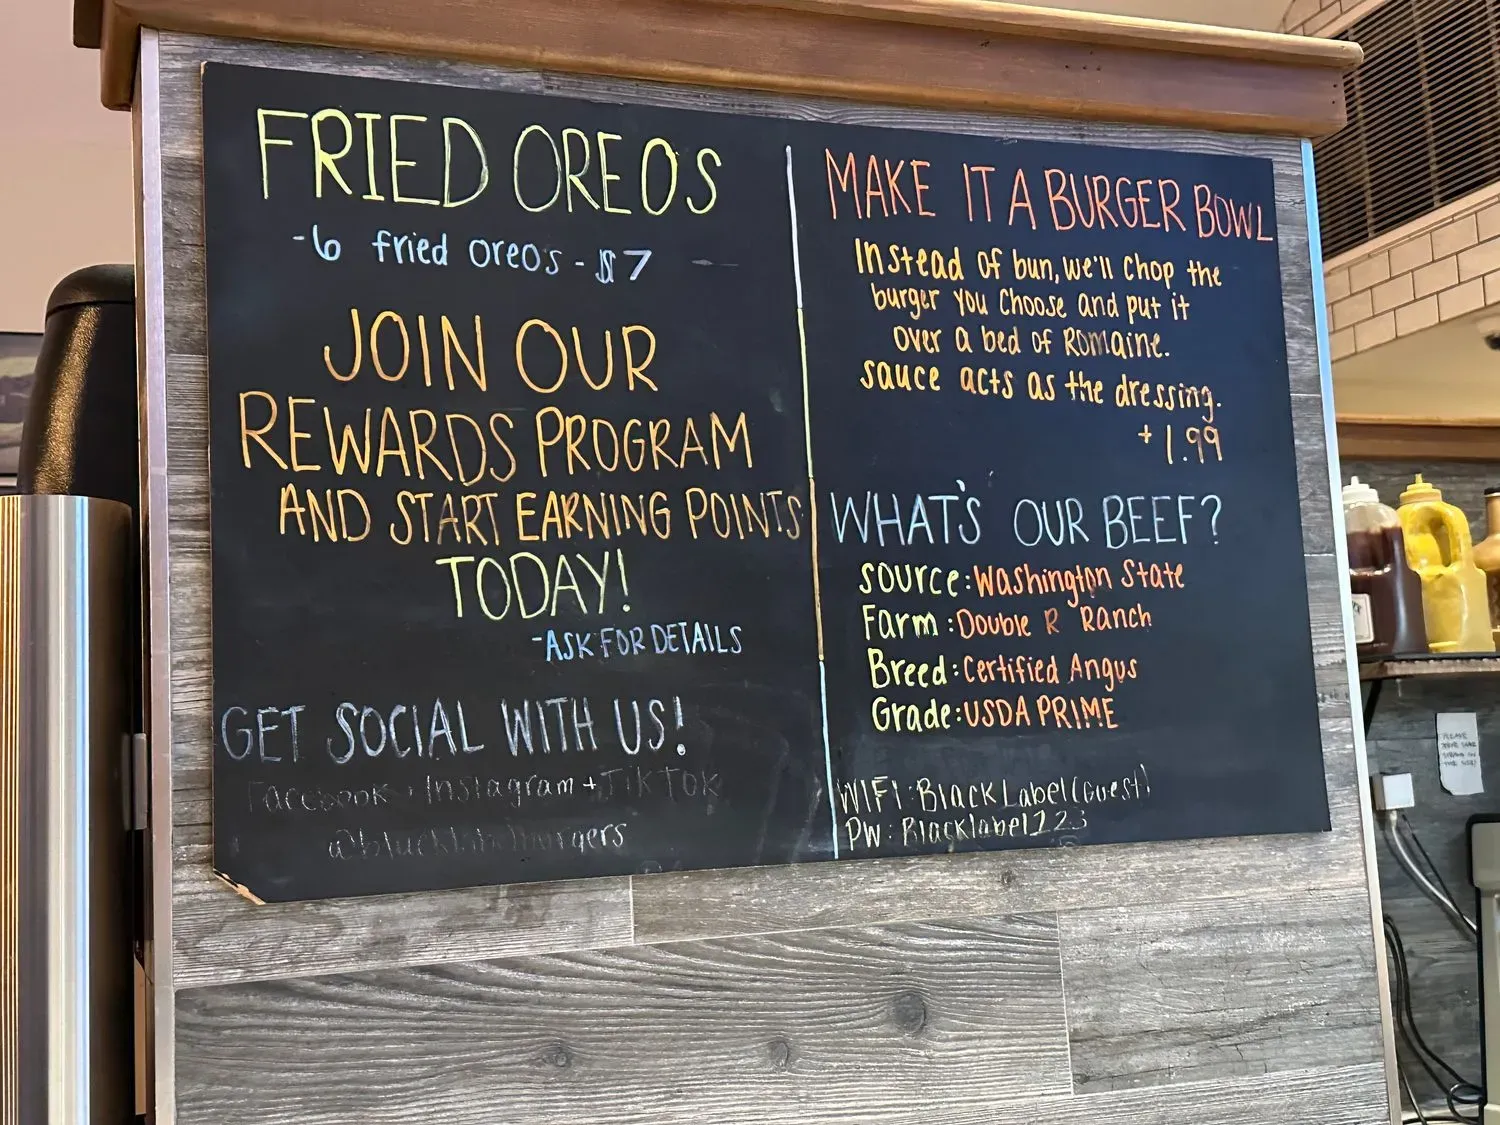 FRIED OREOS
-6 fried oreos - $7
JOIN OUR
REWARDS PROGRAM
AND START EARNING POINTS
TODAY!
-ASK FOR DETAILS
GET SOCIAL WITH US!
Facebook + Instagram + TikTok
@blacklabelburgers
MAKE IT A BURGER BOWL
Instead of bun, we'll chop the
burger you choose and put it
over a bed of Romaine.
sauce acts as the dressing.
+1.99
WHAT'S OUR BEEF?
source: Washington State
Farm: Double R Ranch
Breed: Certified Angus
Grade: USDA PRIME
WIFI: Black Label (Guest)
PW: Blacklabel123